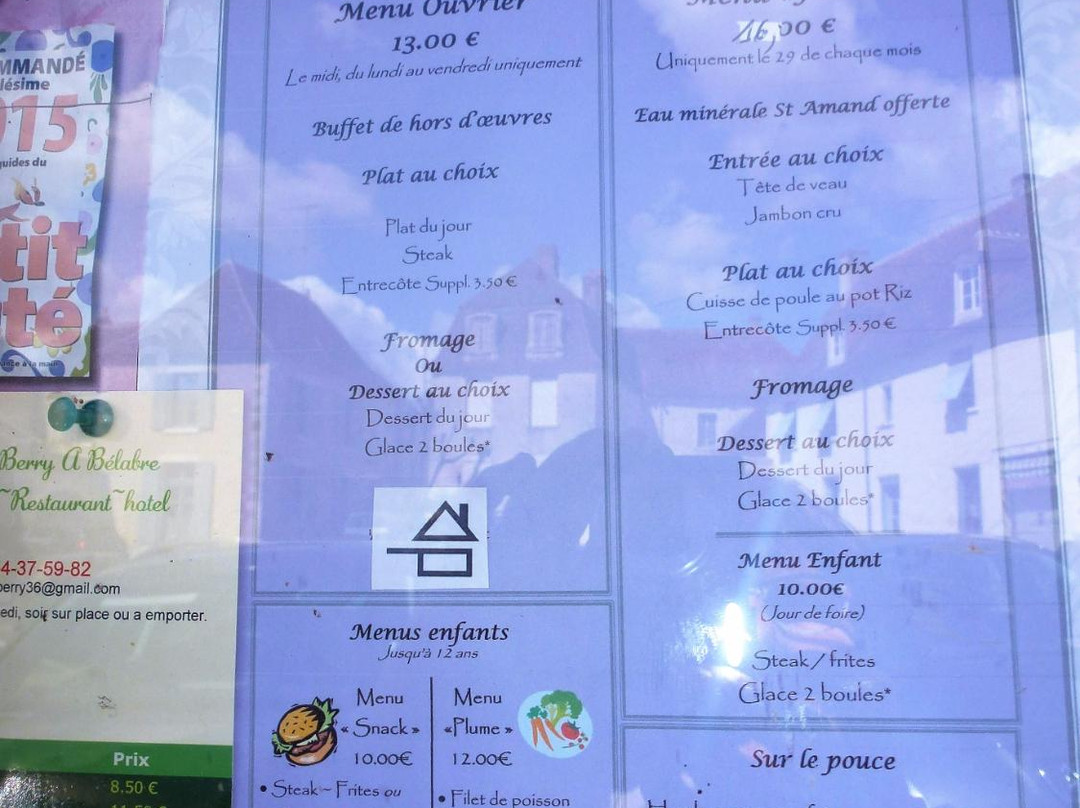 MMANDÉ
lésime
015
guides du
tit
té
Berry A Bélabre
~Restaurant~hotel
4-37-59-82
berry36@gmail.com
edi, soir sur place ou a emporter.
Prix
8.50 €
Menu Ouvrier
13.00 €
Le midi, du lundi au vendredi uniquement
Buffet de hors d'œuvres
Plat au choix
Plat du jour
Steak
Entrecôte Suppl. 3.50 €
Fromage
Ou
Dessert au choix
Dessert du jour
Glace 2 boules*
Menus enfants
Jusqu'à 12 ans
Menu
« Snack »
10.00€
• Steak – Frites ou
Menu
«Plume »
12.00€
• Filet de poisson
16,00 €
Uniquement le 29 de chaque mois
Eau minérale St Amand offerte
Entrée au choix
Tête de veau
Jambon cru
Plat au choix
Cuisse de poule au pot Riz
Entrecôte Suppl. 3.50 €
Fromage
Dessert au choix
Dessert du jour
Glace 2 boules*
Menu Enfant
10.00€
(Jour de foire)
Steak / frites
Glace 2 boules*
Sur le pouce